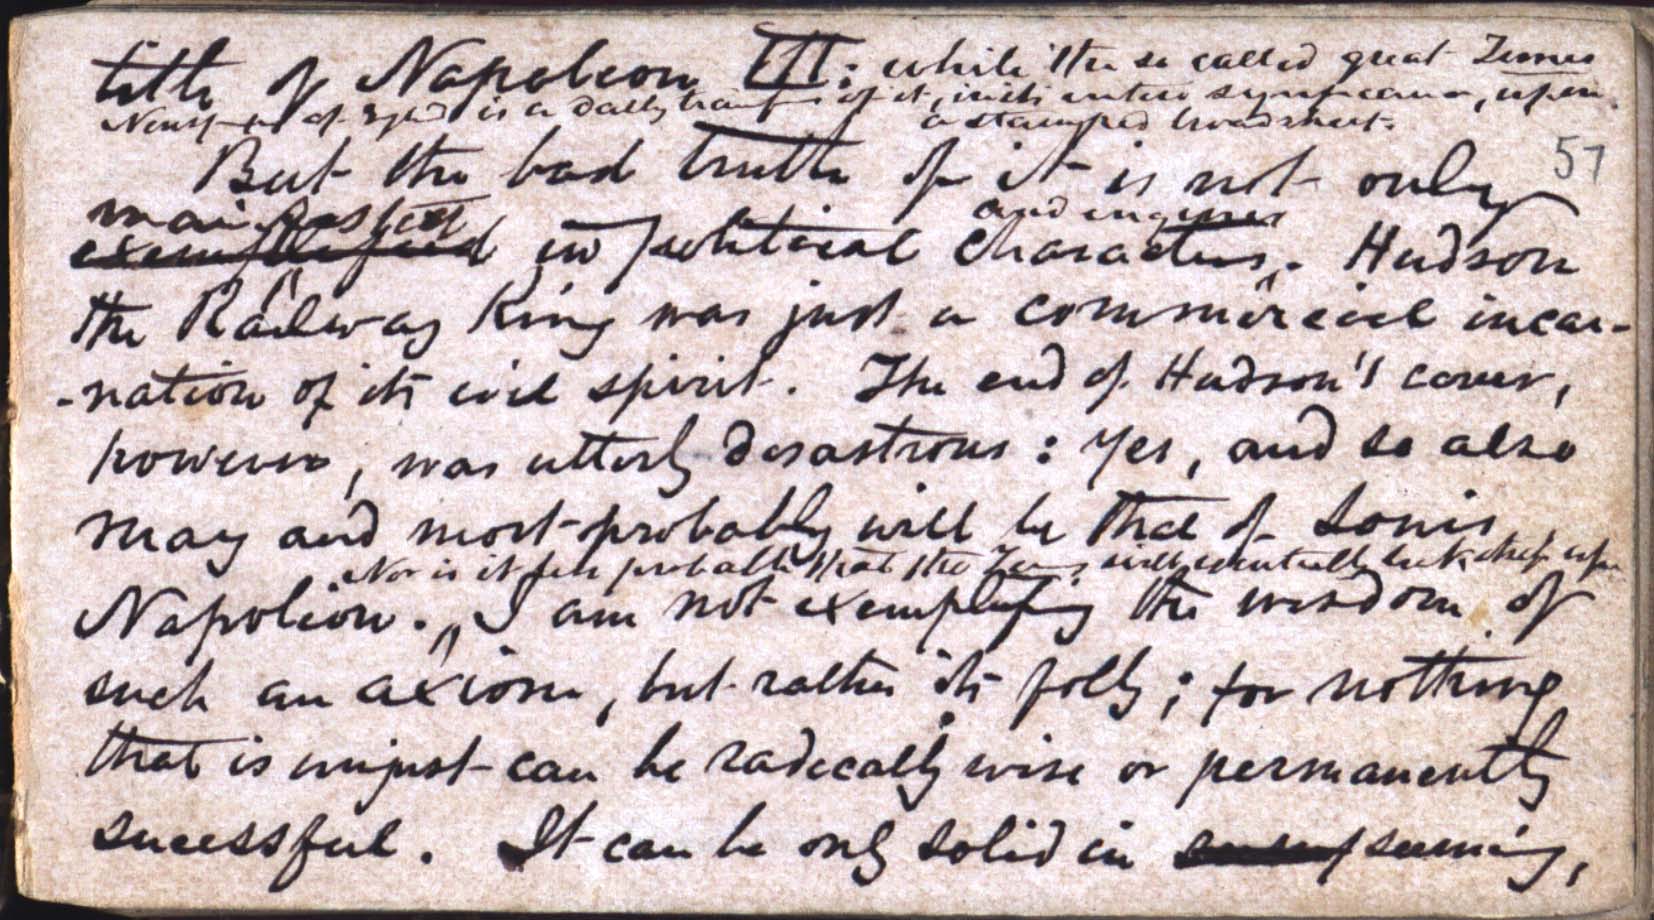 title of Napoleon III: while the so called great Times
Newspaper of is a daily of it, upon
a stamped broadsheet.
57
But the bad truth of it is not only
manifested and
exemplified in political characters. Hudson
the Railway King was just a commercial incar-
-nation of its evil spirit. The end of Hudson's career,
however, was utterly disastrous: Yes, and so also
may and most probably will be that of Louis
Nor is it less probable that the Times will eventually upon
Napoleon. I am not exemplifying the wisdom of
such an axiom, but rather its folly; for nothing
that is unjust can be radically wise or permanently
sucessful. It can be only solid in seeming,